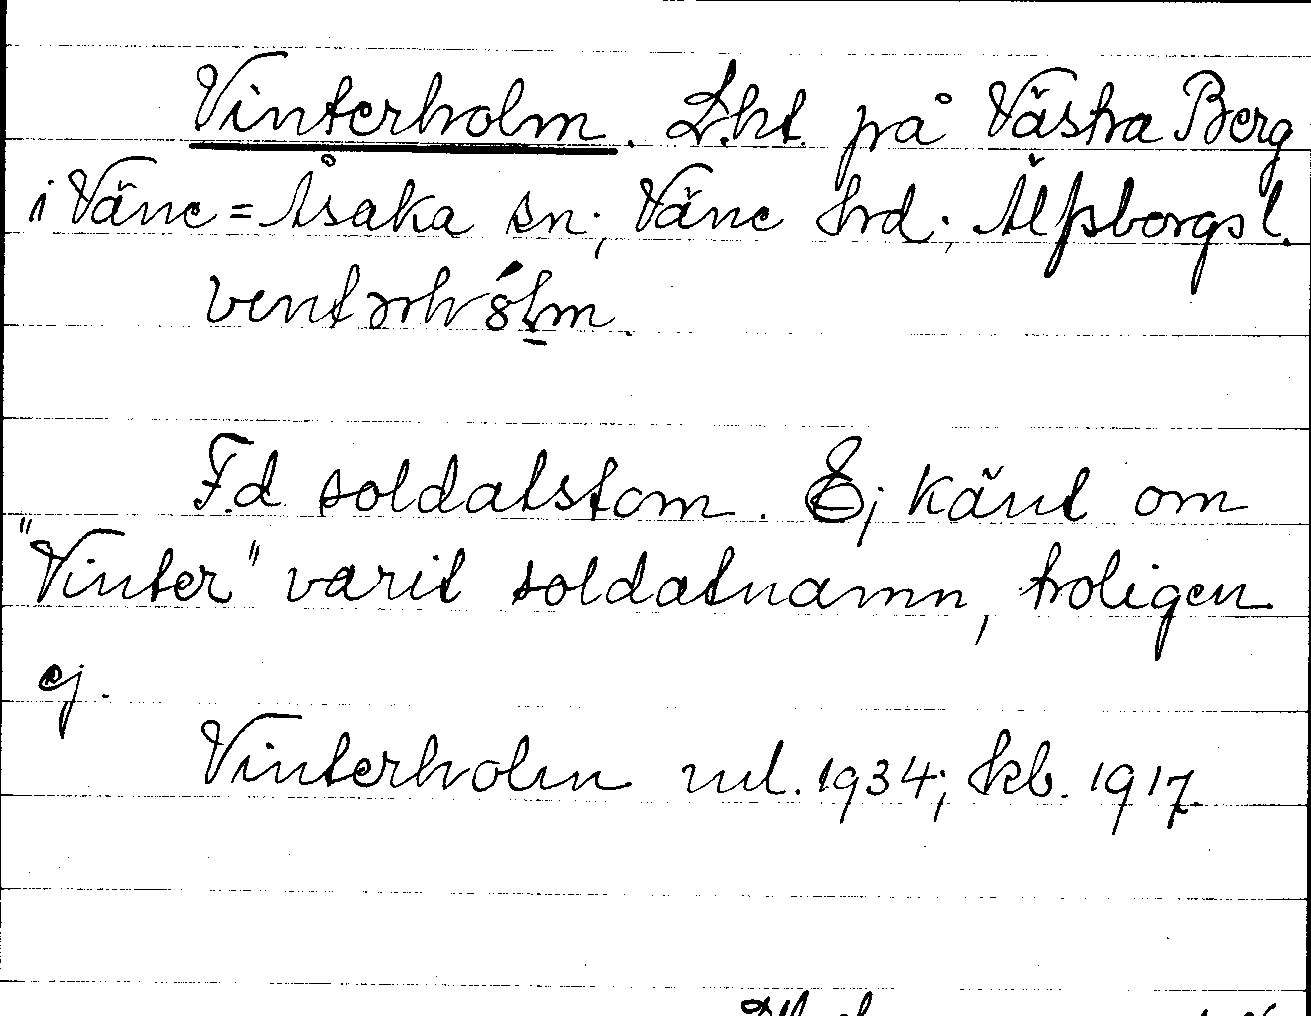 Vinterholm. Lht. på Västra Berg
i Väne=Åsaka sn; Väne hrd; Älfsborgs l.
F.d soldatstom. Ej känt om
"Vinter" varit soldatnamn, troligen
ej.
Vinterholm ml. 1934; kb. 1917.